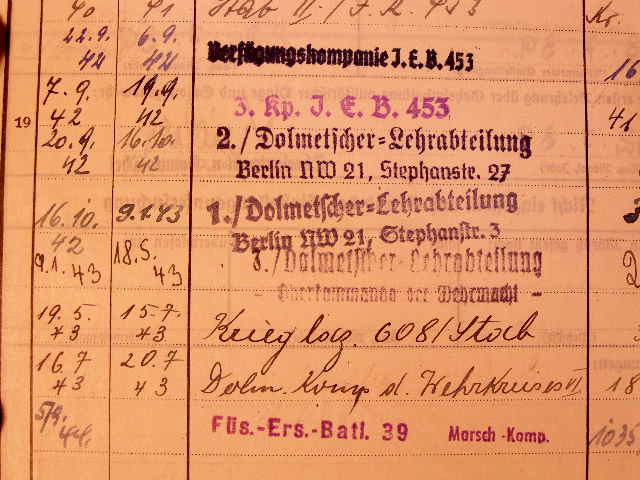 40 41 Stab II./ J. R. 453 Kr.
22.9. 6.9.
42 42 Verfügungskompanie J. E. B. 453 16
7.9. 19.9.
42 42 3. Kp. J. E. B. 453 41
19
20.9. 16.10. 2./Dolmetscher=Lehrabteilung
42 42 Berlin NW 21, Stephanstr. 27
16.10. 9.1.43 1./Dolmetscher=Lehrabteilung
42 Berlin NW 21, Stephanstr. 3
9.1. 43 18.5. 43 /Dolmetscher=Lehrabteilung
– Oberkommando der Wehrmacht –
19.5. 15.7.
43 43 Kriegslag. 608/Stab
16.7 20.7
43 43 Dolm. Komp d. Wehrkreises VI 18
Füs.-Ers.-Batl. 39 Marsch-Komp. 1035